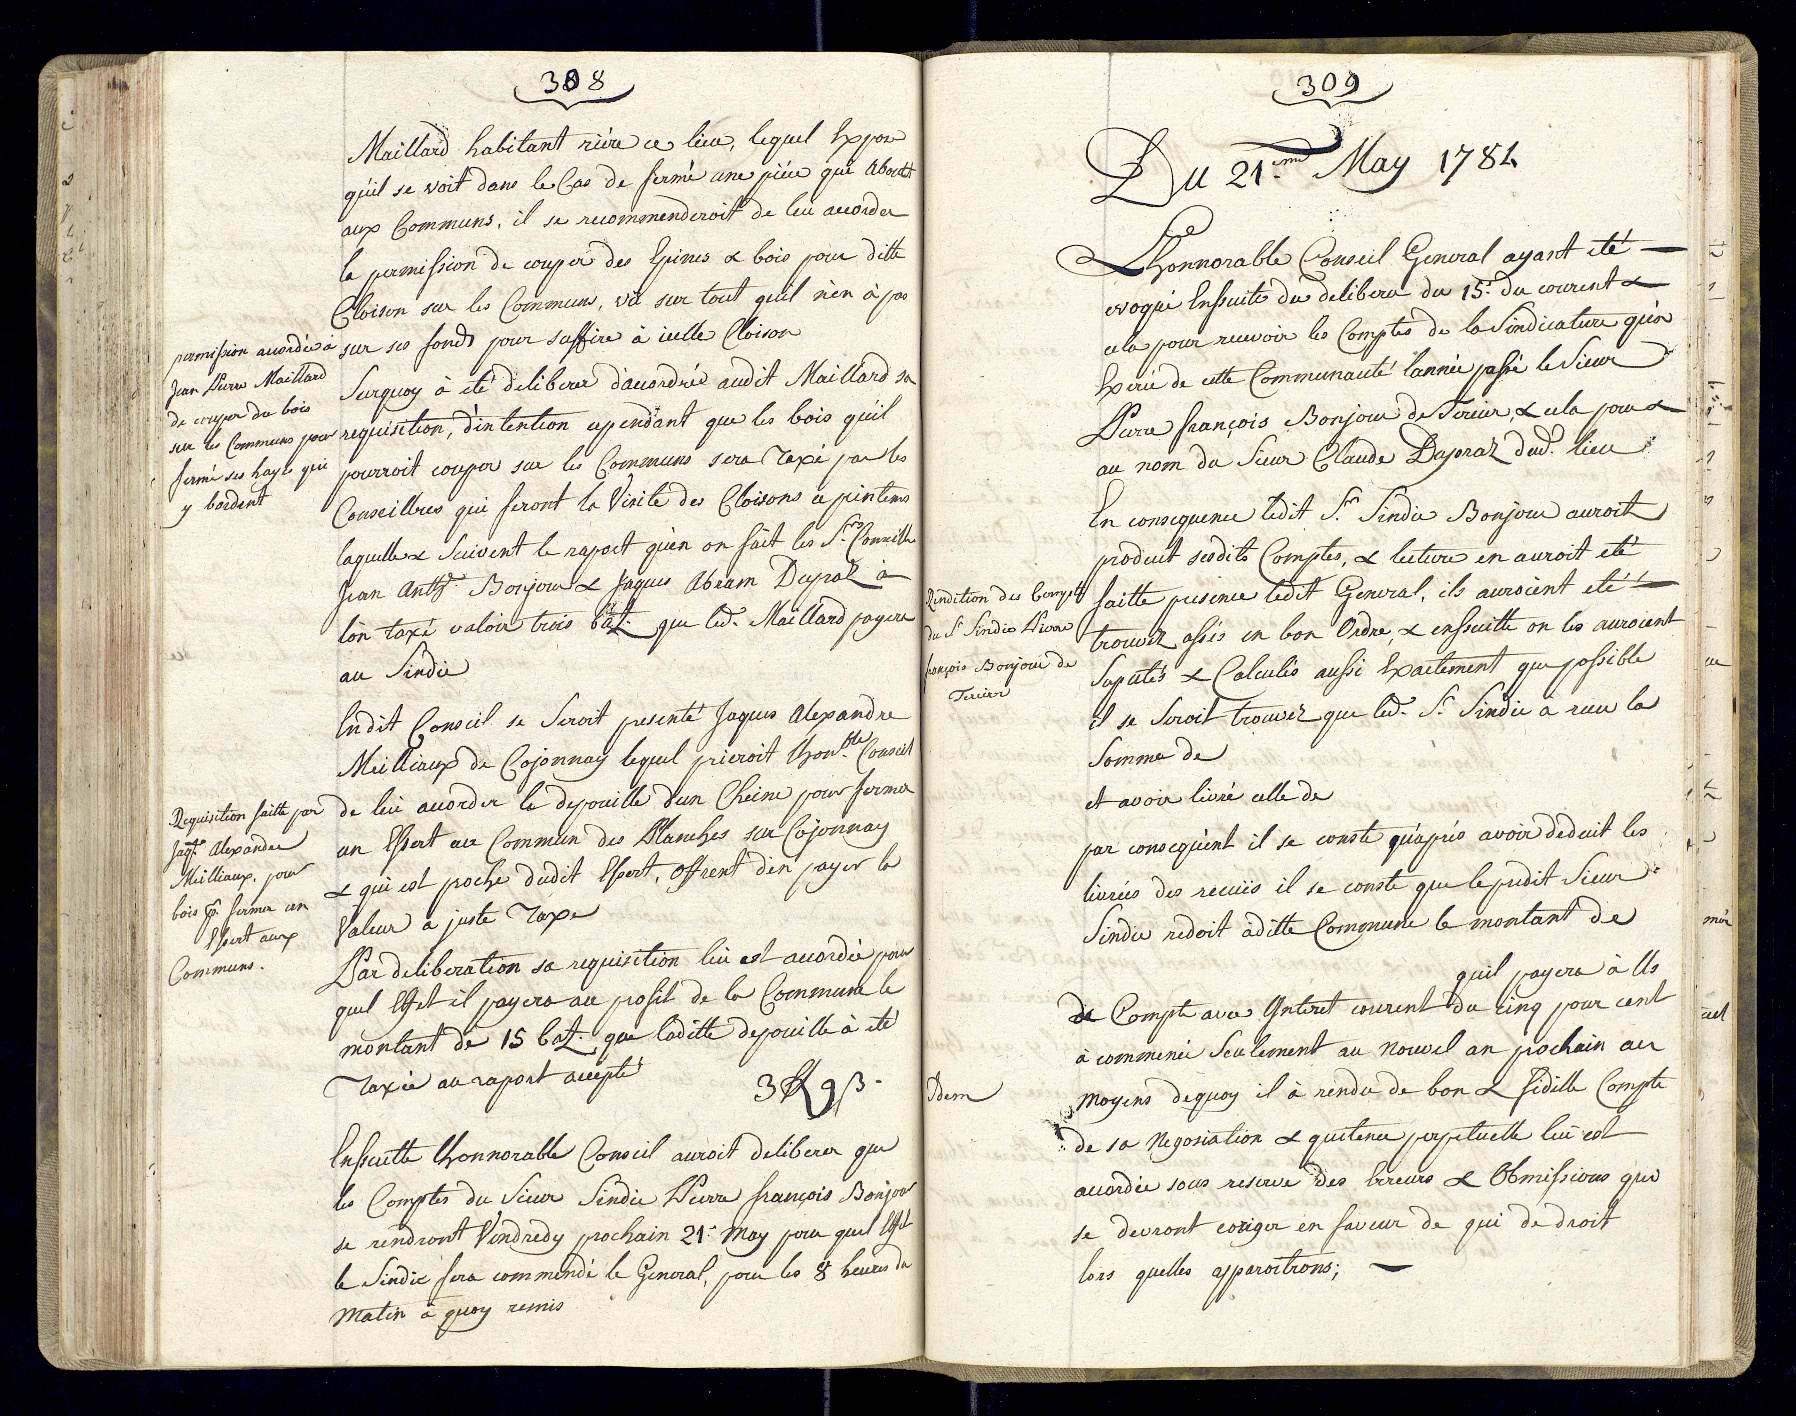 308
Maillard habitant riére ce lieu, lequel Expose
qu'il se voit dans le Cas de fermé une piéce qui aboutit
aux Communs, il se recommenderoit de lui accorder
la permission de couper des Epines & bois pour ditte
Cloison sur les Communs, vû sur tout qu'il n'en à pas
sur ses fonds pour suffire à icelle Cloison
permission accordée à
Jean Pierre Maillard
de couper du bois
sur les Communs pour
fermé ses hayes qui
y bordent
Surquoy à eté déliberer d'accordrée audit Maillard sa
requisition, d'intention cependant que les bois qu'il
pourroit couper sur les Communs sera Taxé par les
Conseillres qui feront la Visite des Cloisons ce pintems
laquelle & Suivent le raport qu'en on fait les Srs Conseille
Jean Anth. Bonjour & Jaques Abram Dupraz à
l'on taxé valoir trois batz. que led. Maillard payera
au Sindic
Endit Conseil se Seroit pesenté Jaques Alexandre
Meilliaux de Cojonnay lequel prieroit l'honble Conseil
de lui accorder le depouille d'un Cheine pour fermer
un Essert au Commun des Planches sur Cojonnay
& qui est proche dudit Essert, offrent d'en payer la
Valeur a juste Taxe
Requisition faitte par
Jaqs. Alexandre
Meilliaux, pour
bois pr. fermer un
Essert aux
Communs.
Par deliberation sa requisition lui est accordée pour
quel Effet il payera au profit de la Commune le
montant de 15 batz. que laditte depouille à eté
Taxée au raport accepté
Ensuitte l'honnorable Conseil auroit deliberer que
les Comptes du Sieur Sindic Pierre françois Bonjour
se rendront Vendredy prochain 21e May pour quel Effet
le Sindic fera commendé le General, pour les 8 heures du
Matin à quoy remis
309
Du 21.me May 1784
L'honnorable Conseil General ayant eté
evoqué Ensuite du delibera du 15e du courent &
cela pour recevoir les Comptes de la Sindicature qu'à
Exercé de cette Communauté l'année passé le Sieur
Pierre françois Bonjour de Tercier, & cela pour &
au nom du Sieur Claude Dapraz dud. lieu
En consequence ledit Sr Sindic Bonjour auroit
produit sesdits Comptes, & lecture en auroit eté
faitte presence ledit General, ils auroient eté
trouvez assés en bon Ordre, & ensuitte on les auroient
Suputés & Calculés aussi Exactement que possible
il se Seroit trouvez que led. Sr Sindic a recu la
Somme de
et avoir livré celle de
Rendition des Compts
du Sr Sindic Pierre
françois Bonjour de
Tercier
par consequent il se conste qu'après avoir deduit les
livrées des recuës il se conste que le predit Sieur
Sindic redoit à ditte Commune le montant de
quil payera à Us
de Compte avec Interet courent du cinq pour cent
à commencé Seulement au nouvel an prochain au
moyens dequoy il à rendu de bon & fidelle Compte
de sa Negosiation & quitence perpetuelle lui est
accordée sous reserve des Erreurs & Obmissions que
se devront coriger en faveur de qui de droit
lors quelles apparoitrons;
Idem